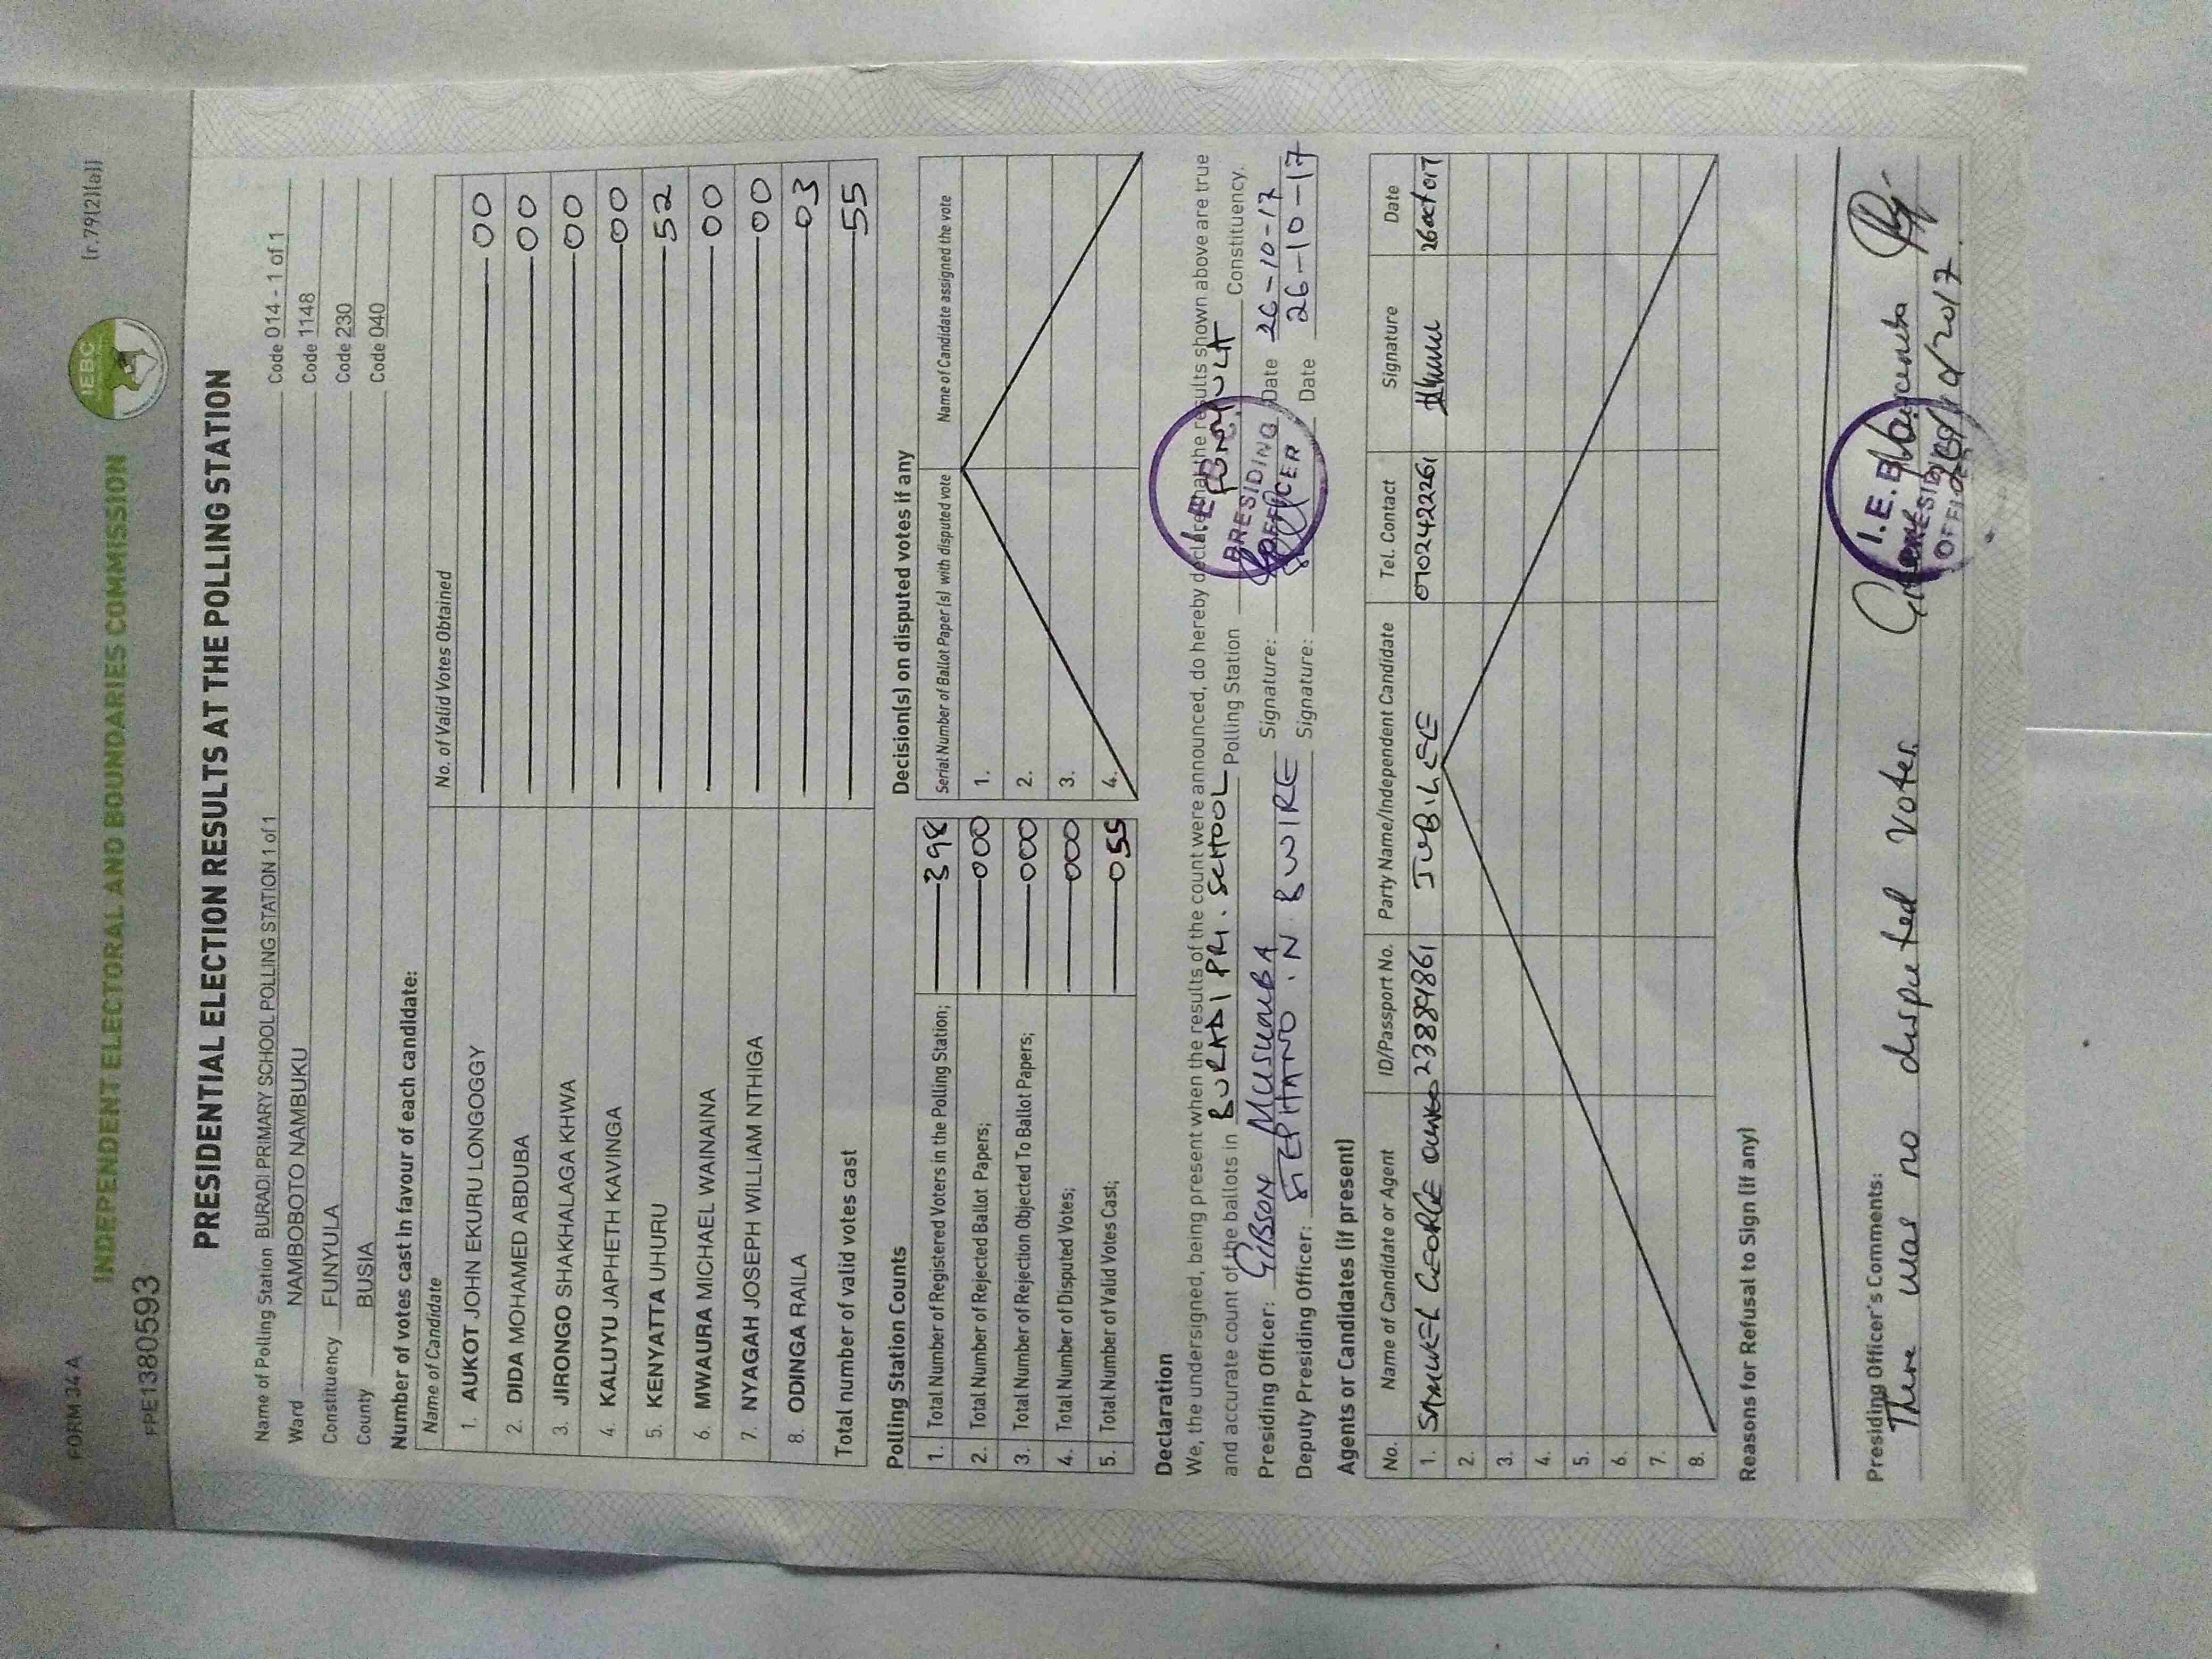 FORM 34 A
[r.79(2)(a)]
INDEPENDENT ELECTORAL AND BOUNDARIES COMMISSION
IEBC
PPE1380593
PRESIDENTIAL ELECTION RESULTS AT THE POLLING STATION
Name of Polling Station BURADI PRIMARY SCHOOL POLLING STATION 1 of 1 Code 014 - 1 of 1
Ward NAMBOBOTO NAMBUKU Code 1148
Constituency FUNYULA Code 230
County BUSIA Code 040
Number of votes cast in favour of each candidate:
Name of Candidate No. of Valid Votes Obtained
1. AUKOT JOHN EKURU LONGOGGY 00
2. DIDA MOHAMED ABDUBA 00
3. JIRONGO SHAKHALAGA KHWA 00
4. KALUYU JAPHETH KAVINGA 00
5. KENYATTA UHURU 52
6. MWAURA MICHAEL WAINAINA 00
7. NYAGAH JOSEPH WILLIAM NTHIGA 00
8. ODINGA RAILA 03
Total number of valid votes cast 55
Polling Station Counts
1. Total Number of Registered Voters in the Polling Station; 398
2. Total Number of Rejected Ballot Papers; 000
3. Total Number of Rejection Objected To Ballot Papers; 000
4. Total Number of Disputed Votes; 000
5. Total Number of Valid Votes Cast; 055
Decision(s) on disputed votes if any
Serial Number of Ballot Paper (s) with disputed vote Name of Candidate assigned the vote
1.
2.
3.
4.
Declaration
We, the undersigned, being present when the results of the count were announced, do hereby declare that the results shown above are true
and accurate count of the ballots in BURADI PRI. SCHOOL Polling Station FUNYULA Constituency.
Presiding Officer: GIBSON MUSUMBA Signature: Date 26-10-17
Deputy Presiding Officer: STEPHANO . N . BWIRE Signature: Date 26-10-17
I.E.B.C.
PRESIDING
OFFICER
Agents or Candidates (if present)
No. Name of Candidate or Agent ID/Passport No. Party Name/Independent Candidate Tel. Contact Signature Date
1. SAMUEL GEORGE 23889861 JUBILEE 0702422261 26 oct 017
2.
3.
4.
5.
6.
7.
8.
Reasons for Refusal to Sign (if any)
Presiding Officer's Comments:
There was no disputed votes
I.E.B.C
PRESIDING
OFFICER